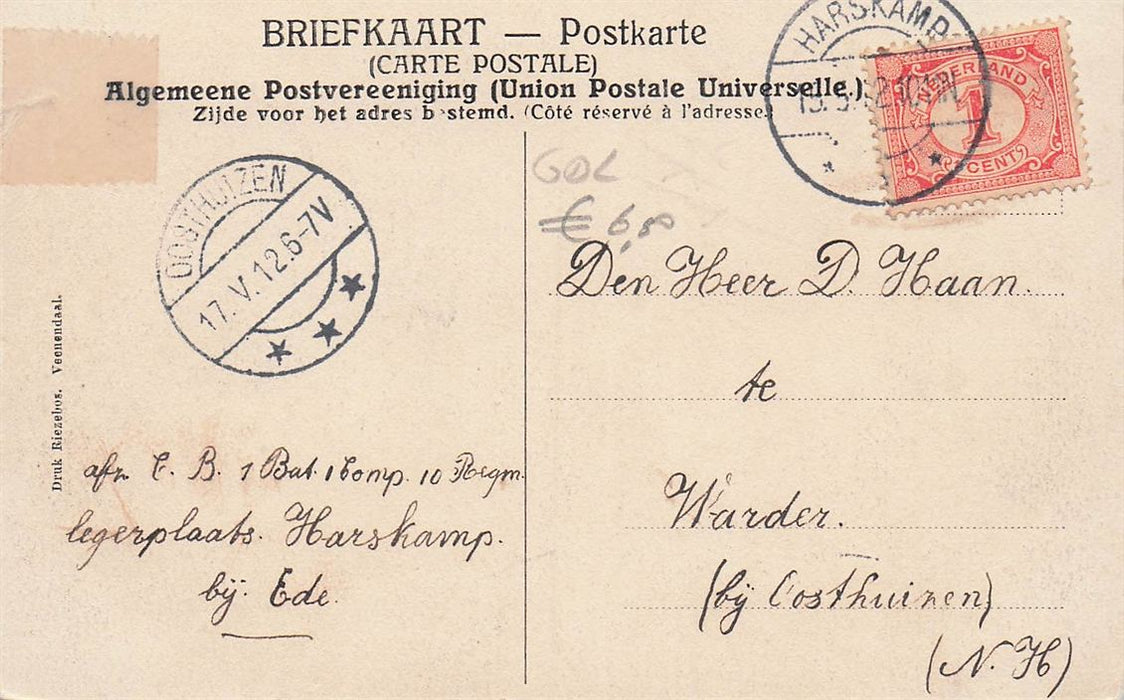 BRIEFKAART — Postkarte
(CARTE POSTALE)
Algemeene Postvereeniging (Union Postale Universelle.)
Zijde voor het adres bestemd. (Côté réservé à l'adresse.)
HARSKAMP
NEDERLAND
1
CENT
OOSTHUIZEN
17.V.12.6-7V
GDL
€ 6,50
Den Heer D. Haan.
te
Warder.
(bij Oosthuizen)
(N.H)
afz. C. B. 1 Bat. 1 Comp. 10 Regm.
legerplaats. Harskamp.
bij. Ede.
Druk Riezebos. Veenendaal.